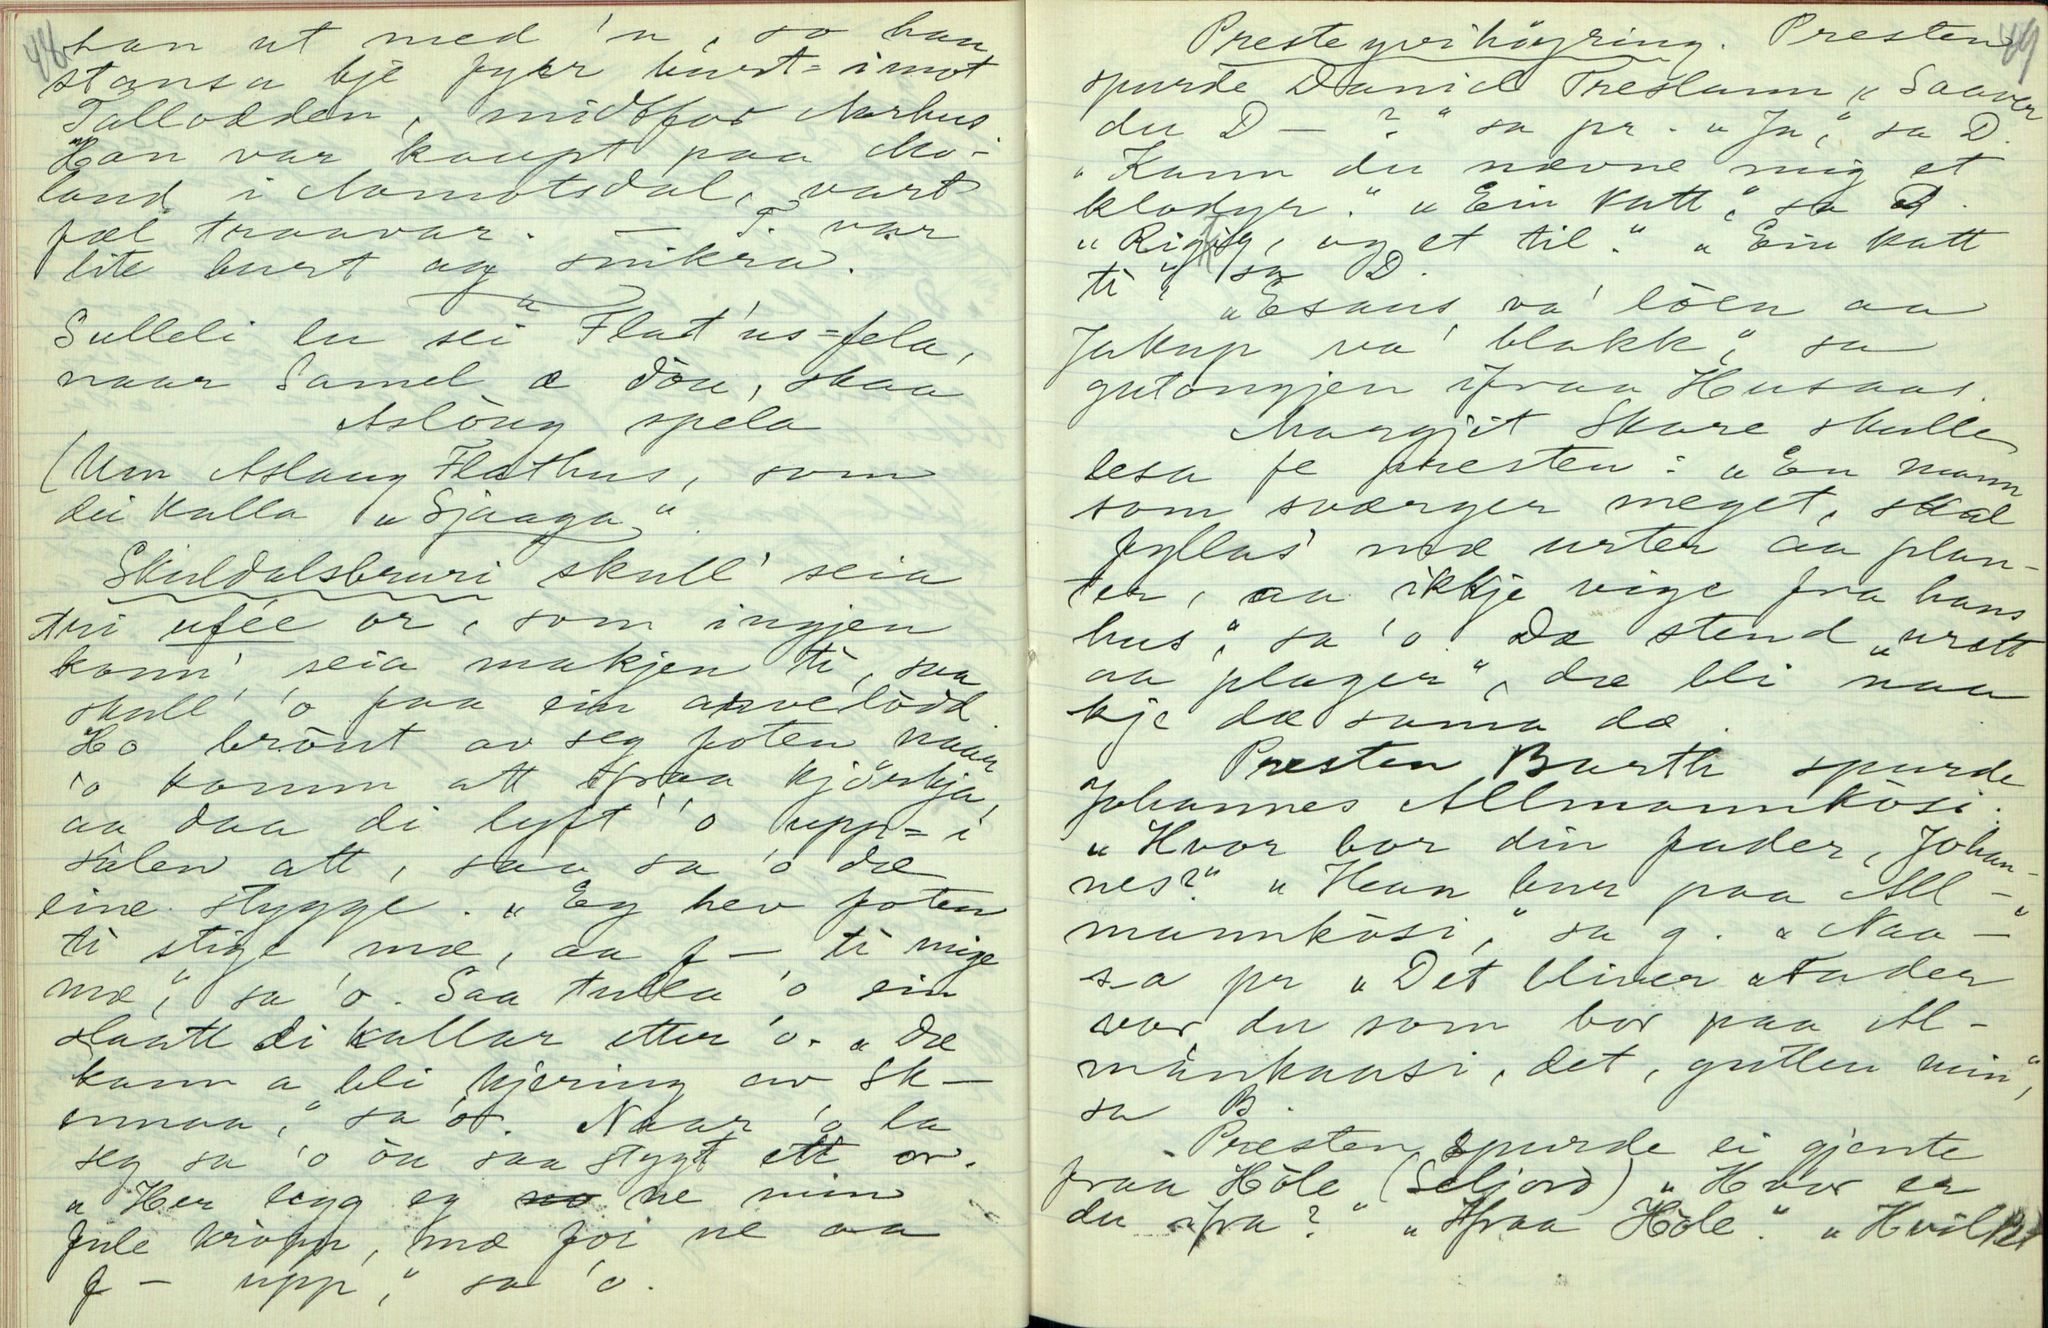 48
han ut med 'n, so han
stansa kje fyrr burt-imot
Tallodden, midtfor Aarhus.
Han var kaupt paa Mo-
land i Aamotsdal, vart
fæl traavar. — T. var
lite burt og snikra.
Sulleli lu sei Flat'us-fela,
naar Samel æ döu, skaa
Aslöug spela
(Um Aslaug Flathus, som
dei kalla „Sjaaga“
Skuldalsbruri skull' seia
tri ufée or, som ingjen
kann' seia makjen ti, saa
skull' 'o faa ein arvelödd.
Ho brönt av seg foten naar
'o komm att ifraa kjörkja,
aa daa di lyft 'o upp-i
salen att, saa sa 'o dæ
eine stygge. „Eg hev foten
ti stige mæ, aa f — ti mige
mæ“, sa 'o. Saa tulla 'o ein
slaatt di kallar etter 'o. „Dæ
kann a bli kjering av Sk-
onnaa,“ sa 'o. Naar 'o la
seg sa 'o öu saa stygt ett or.
„Her legg eg ne min
fule kropp, mæ foi ne aa
f — upp“, sa 'o.
49
Presteyvihöyring. Presten
spurde Daniel Treslann „Saaver
du D — ?“ sa pr. „Ja“, sa D.
„Kann du nævne mig et
klodyr.“ „Ein katt“, sa D.
„Rigtig, og et til.“ „Ein katt
ti“ sa D.
„Esaus va' löen aa
Jakup va' blakk“, sa
gutongjen ifraa Husaas.
Margjit Skare skulle
lesa fe presten: „En mann
som sværger meget, skal
fyllas mæ urter aa plan-
ter, aa ikkje vige fra hans
hus“, sa 'o. Dæ stend „urett
aa plager“, dæ bli naa
kje dæ sama dæ.
Presten Barth spurde
Johannes Allmannkösi.
„Hvor bor din fader, Johan-
nes?“ „Han bur paa All-
mannkösi,“ sa g. „Naa —“
sa pr „Det bliver „Fader
vor, du som bor paa Al-
mankaasi, det, gutten min“,
sa B.
Presten spurde ei gjente
fraa Höle (Seljord) „Hvor er
du ifra?“ „Ifraa Höle.“ „Hvilket